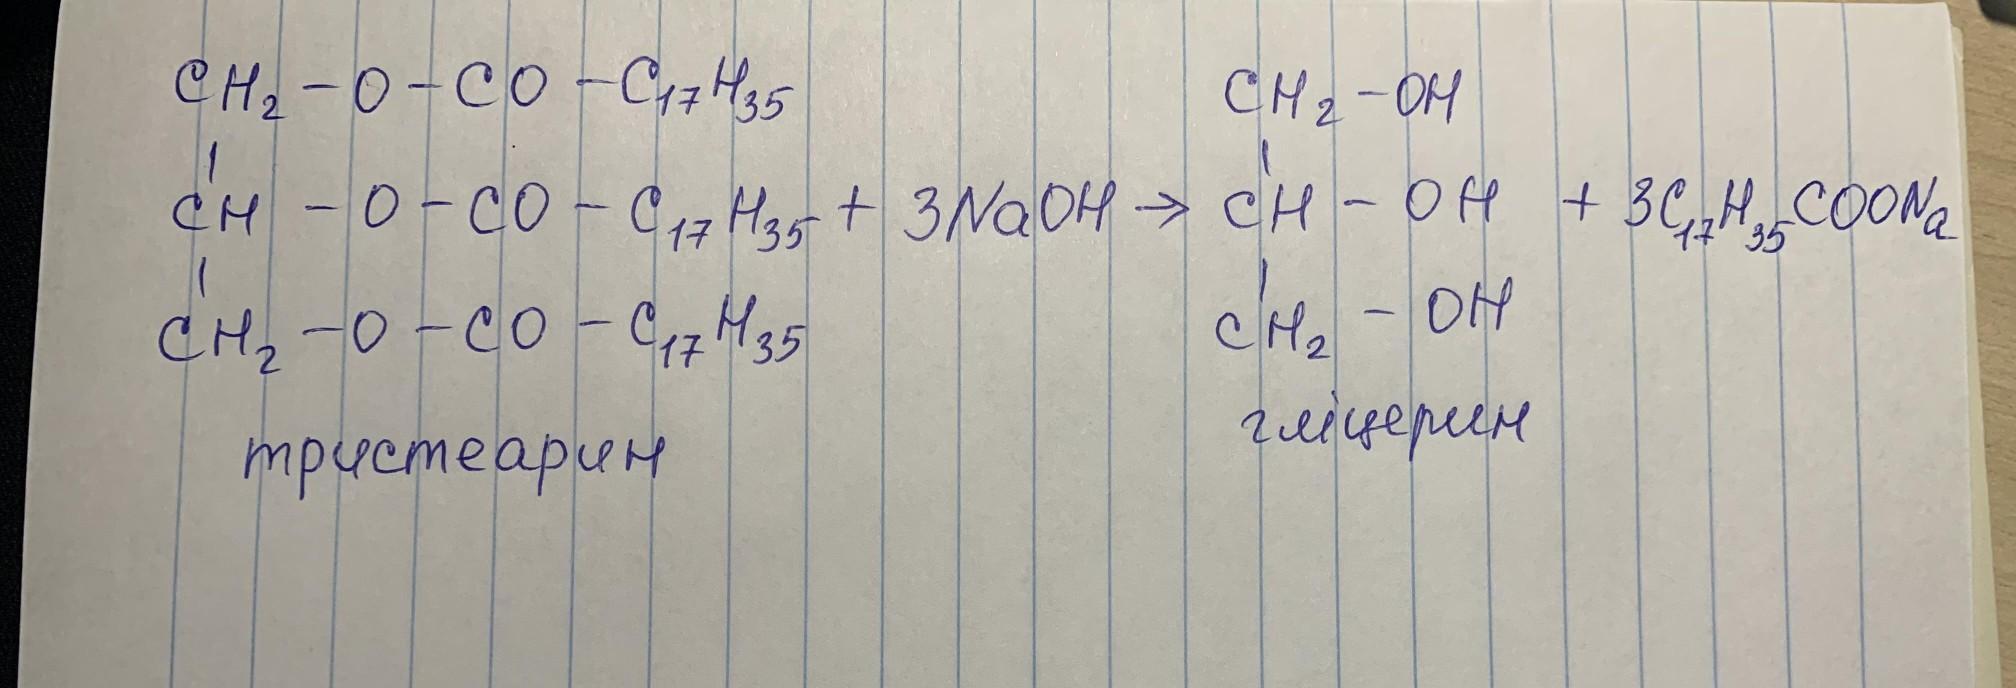 CH₂ – O – CO – C₁₇H₃₅ CH₂ – OH
CH – O – CO – C₁₇H₃₅ + 3NaOH → CH – OH + 3C₁₇H₃₅COONa
CH₂ – O – CO – C₁₇H₃₅ CH₂ – OH
тристеарин гліцерин